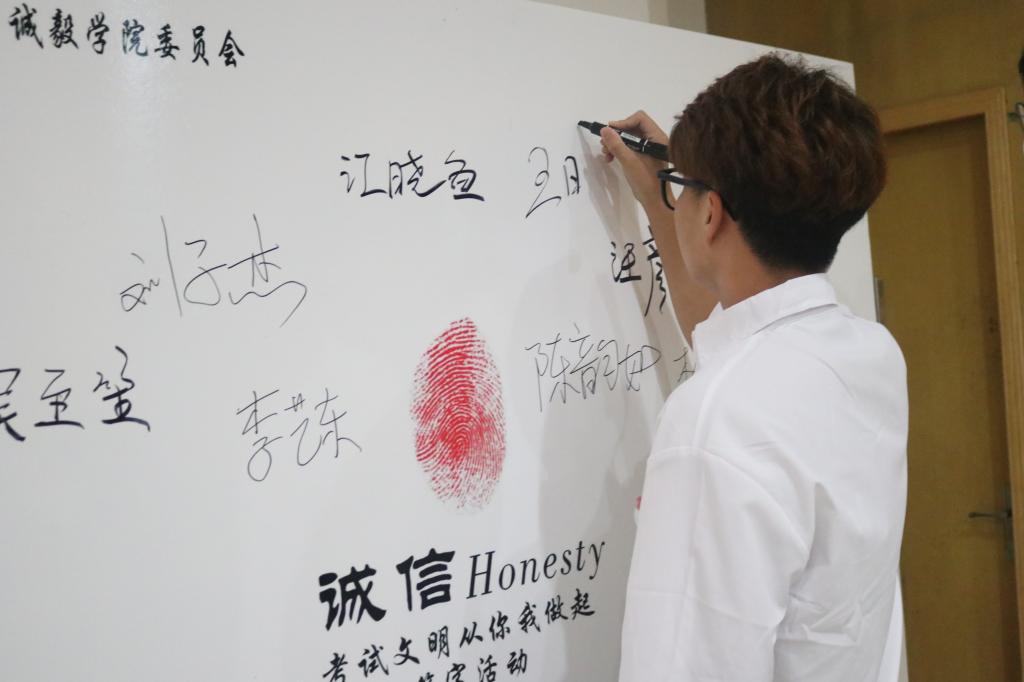 诚毅学院委员会
江晓鱼 王日
刘子杰
汪彦
陈韵
李艺东
诚信 Honesty
考试文明从你我做起
签字活动